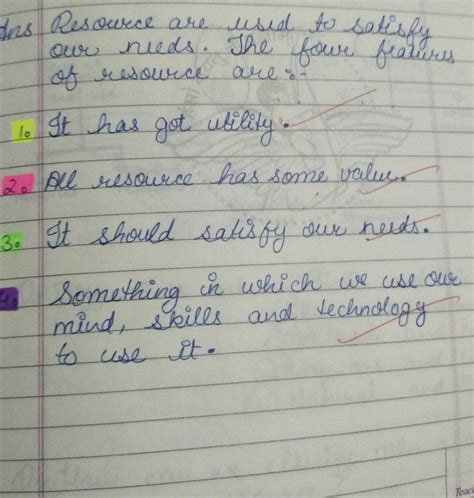 Ans Resource are used to satisfy
our needs. The four features
of resource are :-
1. It has got utility.
2. All resource has some value.
3. It should satisfy our needs.
4. Something in which we use our
mind, skills and technology
to use it.